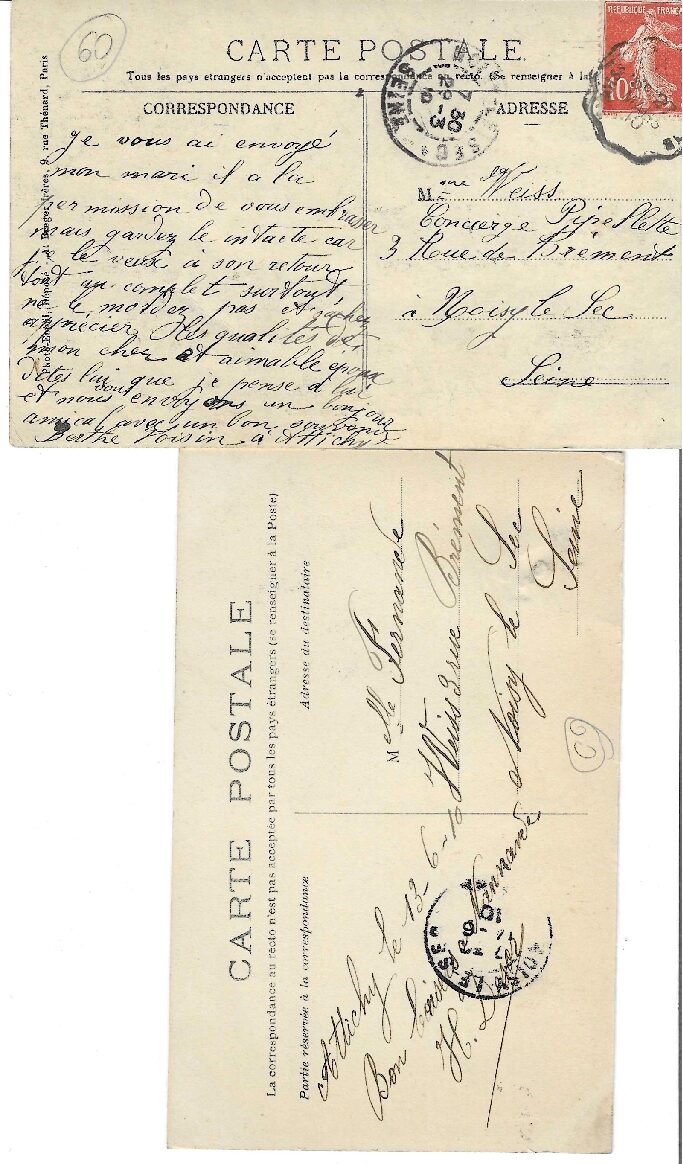 60
CARTE POSTALE
Tous les pays étrangers n'acceptent pas la correspondance au recto. (Se renseigner à la
RÉPUBLIQUE FRANÇAISE
10
NOISY LE SEC
SEINE
7 30
29 -3
10
CORRESPONDANCE
Je vous ai envoyé
mon mari il a la
permission de vous embrasser
mais gardez le intacte car
je le veux à son retour
tout au complet surtout
ne le mordez pas et sachez
apprécier les qualités de
mon cher et aimable époux
dites lui que je pense à lui
et nous vous envoyons un bonjour
amical avec un bon souvenir
Berthe Voisin à Attichy
Berger Frères, 9, rue Thénard, Paris
ADRESSE
Mme Weiss
Concierge Pipelette
3 Rue de Brément
à Noisy le Sec
Seine
CARTE POSTALE
La correspondance au recto n'est pas acceptée par tous les pays étrangers (se renseigner à la Poste)
Partie réservée à la correspondance
Attichy le 13-6-10
Bon
H.
Adresse du destinataire
Melle Fernande
Weiss 3 rue Brément
à Noisy le Sec
Seine
09